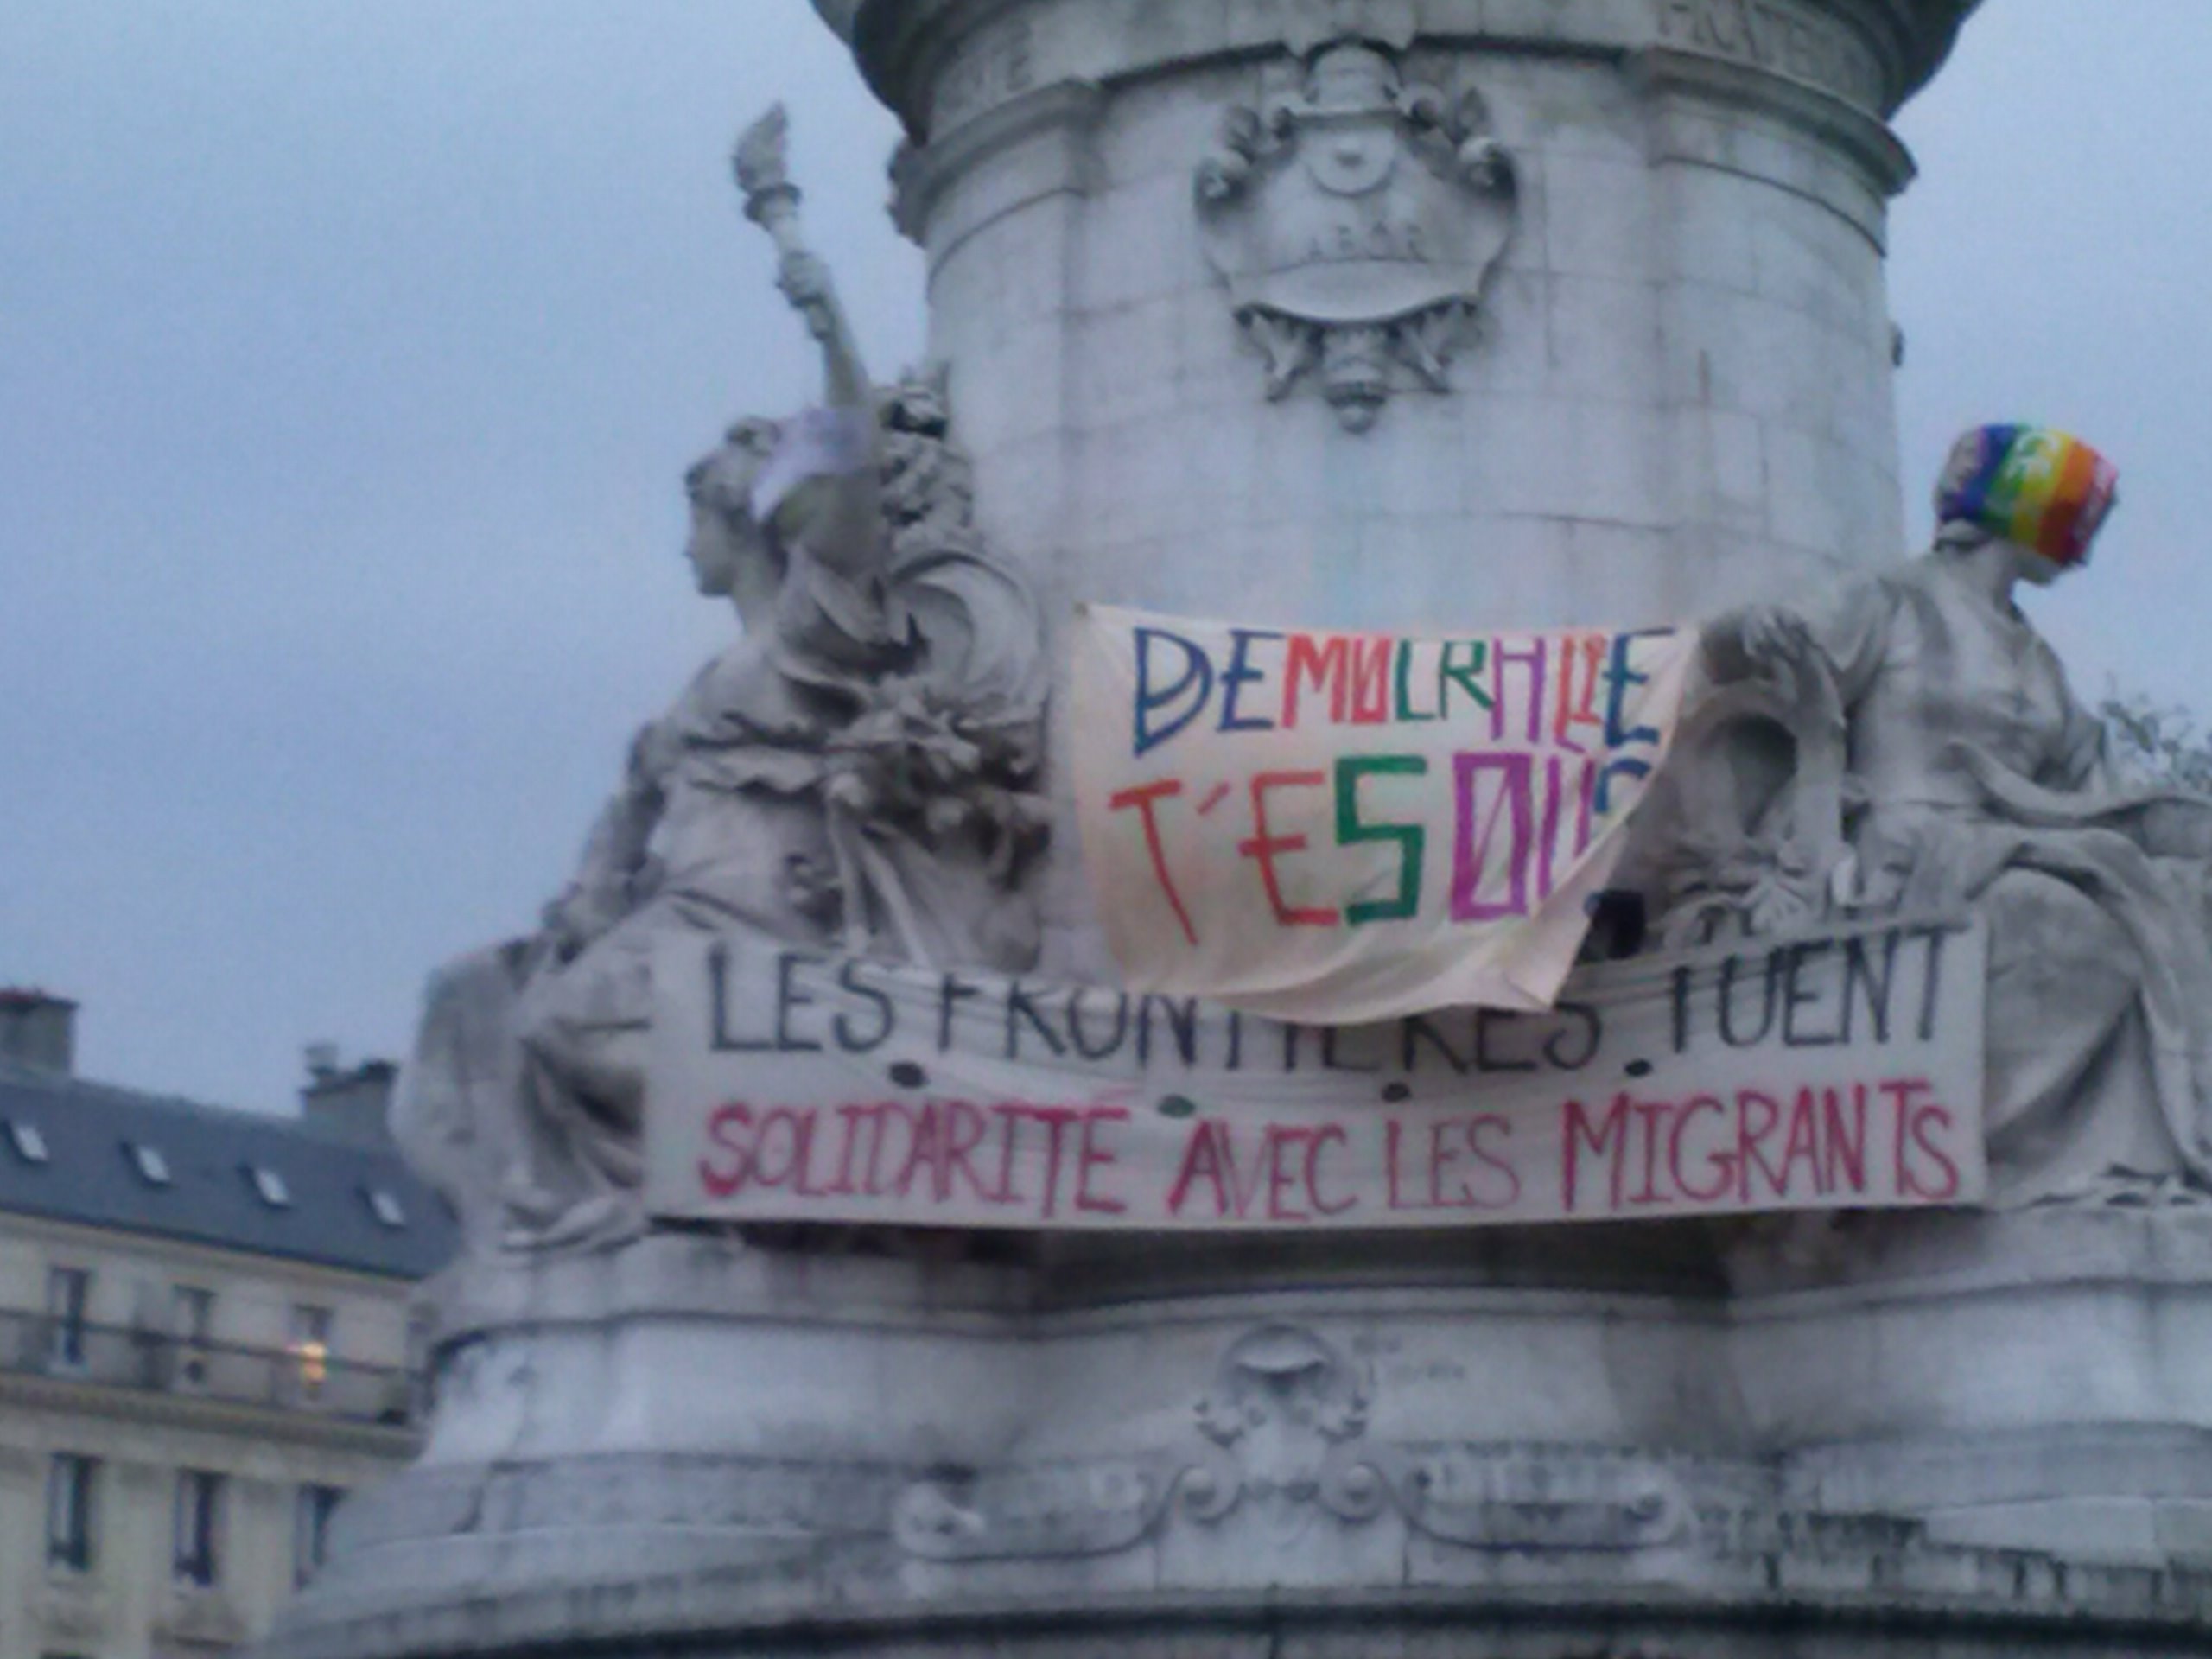 LABOR
DEMOCRATIE
T'ES OÙ
LES FRONTIERES TUENT
SOLIDARITÉ AVEC LES MIGRANTS